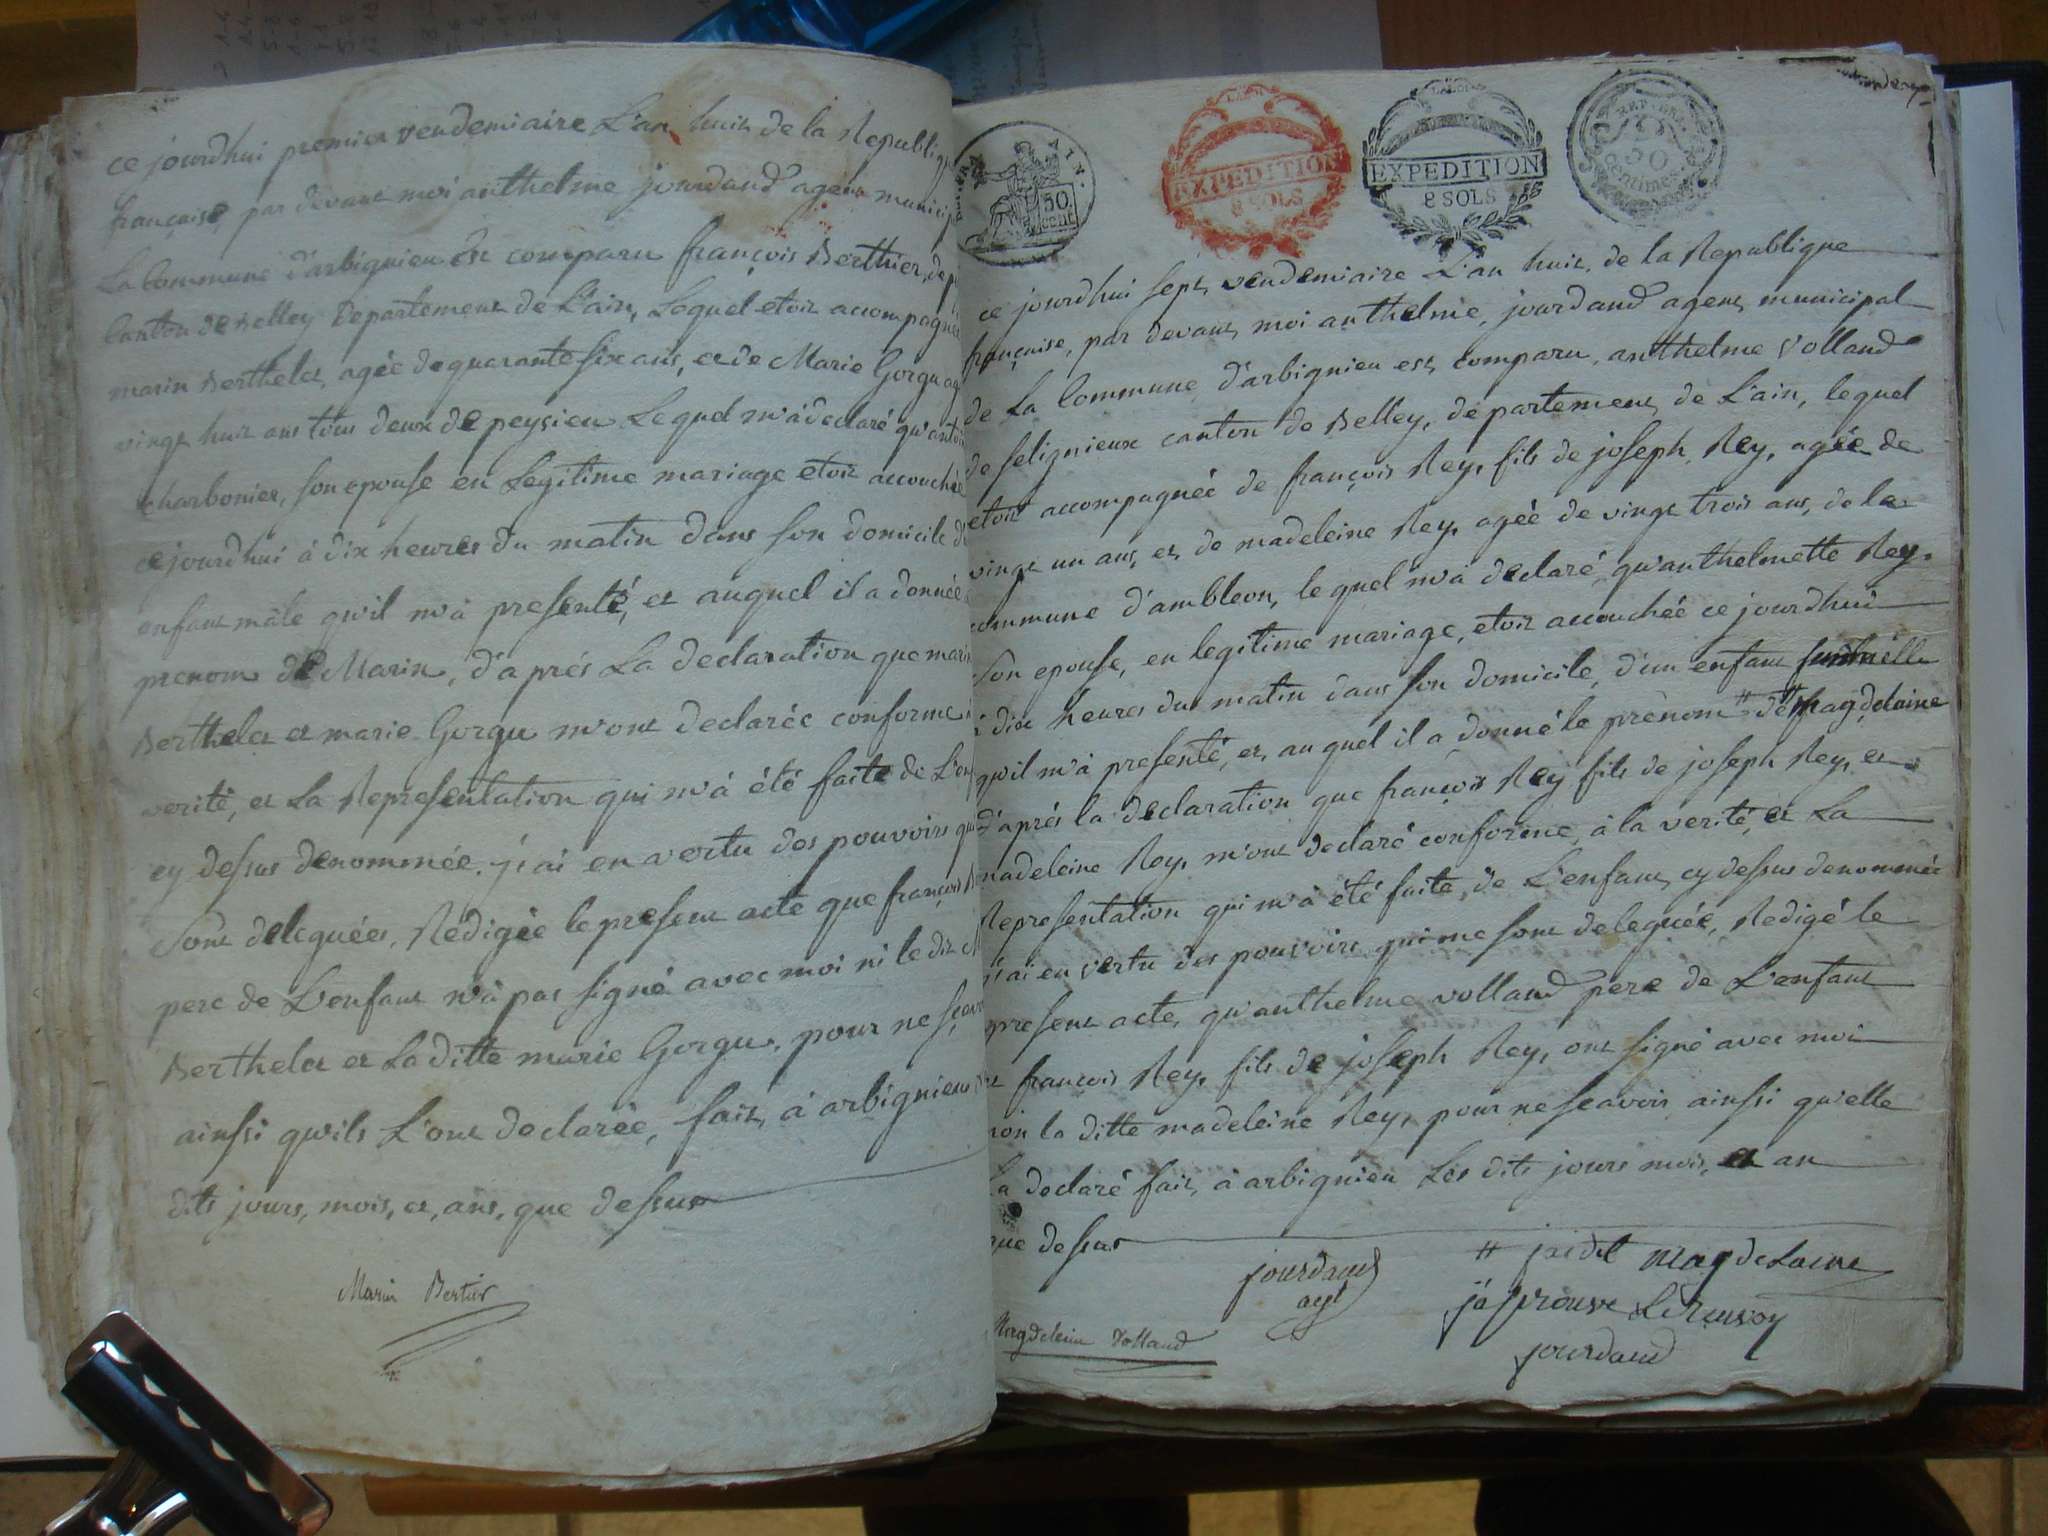 ce jourdhui premier vendemiaire L'an huit de la Republiq
françaisé, par devant moi anthelme jourdand agent municip
La Commune d'arbignieu Est comparu françois Berthier, de p
Canton de Belley Departement de L'ain, Lequel etoit accompagné
marin Berthelet, agée de quarante six ans, et de Marie Gorgu ag
vingt huit ans tous deux de peysieu Lequel m'à declaré qu'antoi
charbonier, son epouse en Legitime mariage etoit accouchée
ce jourd'hui à dix heures du matin dans son domicile d'
enfant mâle qu'il m'à presenté, et auquel il a donnée
prenom de Marin, d'aprés La declaration que marin
Berthelet et marie Gorgu m'ont declarée conforme
verité, et La Representation qui m'à été faite de L'enf
cy dessus denommée. j'ai en vertu des pouvoirs qui
sont deleguées, Rédigée le present acte que françois
pere de L'enfant n'à pas signé avec moi ni le dit
Berthelet et La ditte marie Gorgu. pour ne sçav
ainsi qu'ils L'ont declarée, fait, à arbignieu
dits jours, mois, et, ans, que dessus
Marin Bertier
AIN.
50
CENT
LA LOI
EXPEDITION
8 SOLS
LA LOI
EXPEDITION
8 SOLS
REP. FRA.
50
Centimes
ce jourdhui sept vendemiaire L'an huit de la Republique
française, par devant moi anthelme, jourdand agent municipal
de La Commune d'arbignieu est comparu anthelme Volland
de selignieux canton de Belley, département de L'ain, lequel
etoit accompagnée de françois Rey, fils de joseph Rey, agée de
vingt un ans, et de madeleine Rey, agée de vingt trois ans, de la
commune d'ambleon, lequel m'à declaré qu'anthelmette Rey,
son epouse, en legitime mariage, etoit accouchée ce jourdhui
à dix heures du matin dans son domicile, d'un enfant femelle
qu'il m'à presenté, et, auquel il a donné le prenom # de Magdelaine
d'aprés la declaration que françois Rey fils de joseph Rey, et
madeleine Rey, m'ont declaré conforme, à la verité, et La
Representation qui m'à été faite, de L'enfant cy dessus denommée
j'ai en vertu des pouvoirs qui me sont deleguée, Redigé le
present acte, qu'anthelme volland pere de L'enfant
et françois Rey, fils de joseph Rey, ont signé avec moi
non la ditte madeleine Rey, pour ne sçavoir ainsi qu'elle
La declaré fait, à arbignieu Les dits jours mois, et an
que dessus
jourdand
agt
# jai dit magdelaine
j'aprouve Le Renvoy
jourdand
Magdeleine Volland